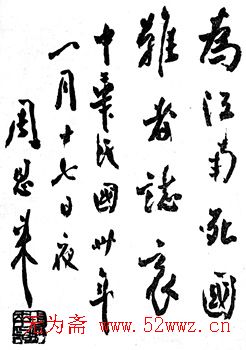 為江南死國
難者誌哀
中華民國卅年
一月十七日夜
周恩来
为斋：www.52wwz.cn